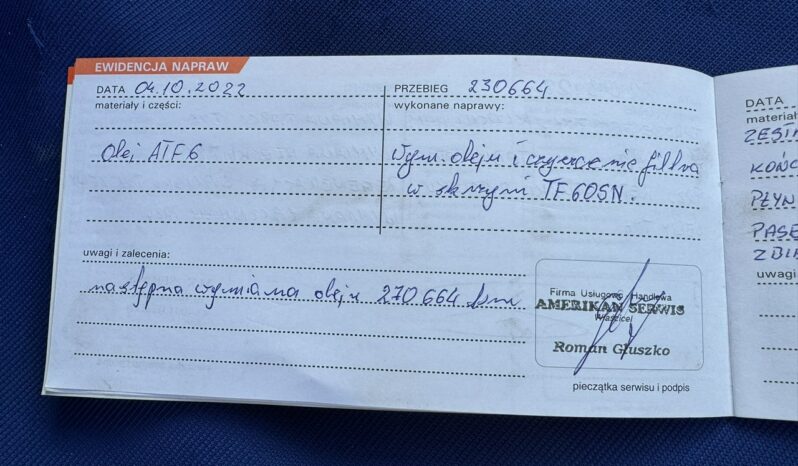 EWIDENCJA NAPRAW
DATA 04.10.2022
PRZEBIEG 230664
materiały i części:
wykonane naprawy:
Olej ATF6
Wym. oleju i czyszczenie filtra
w skrzyni TF60SN.
uwagi i zalecenia:
następna wymiana oleju 270 664 km
Firma Usługowo Handlowa
AMERIKAN SERWIS
Właściciel
Roman Głuszko
pieczątka serwisu i podpis
DATA
KOŃC
PŁYN
PASE
uwagi